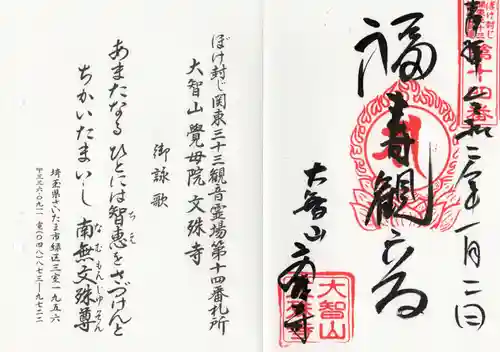 ぼけ封じ
関東三十三
第十四番
奉拝 令和二年一月二日
福寿観音
大智山
文殊寺
大智山
文殊寺
ぼけ封じ関東三十三観音霊場第十四番札所
大智山 覺母院 文殊寺
御詠歌
あまたなる ひとには智恵をさづけんと
ちかいたまいし 南無文殊尊
埼玉県さいたま市緑区三室一九五六
〒三三六-〇九一一 電(〇四八)八七三-九七二二